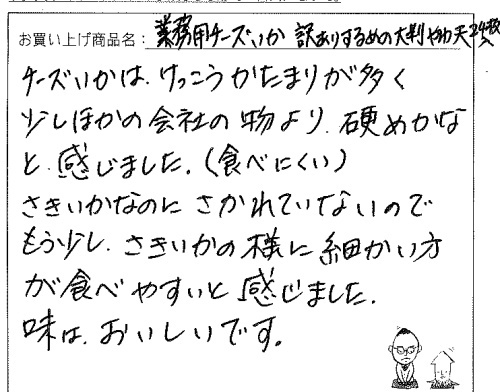 お買い上げ商品名: 業務用チーズいか 訳ありするめの大判やわ天24枚入
チーズいかは、けっこうかたまりが多く
少しほかの会社の物より、硬めかな
と、感じました。(食べにくい)
さきいかなのに さかれていないので
もう少し、さきいかの様に細かい方
が食べやすいと感じました。
味は、おいしいです。